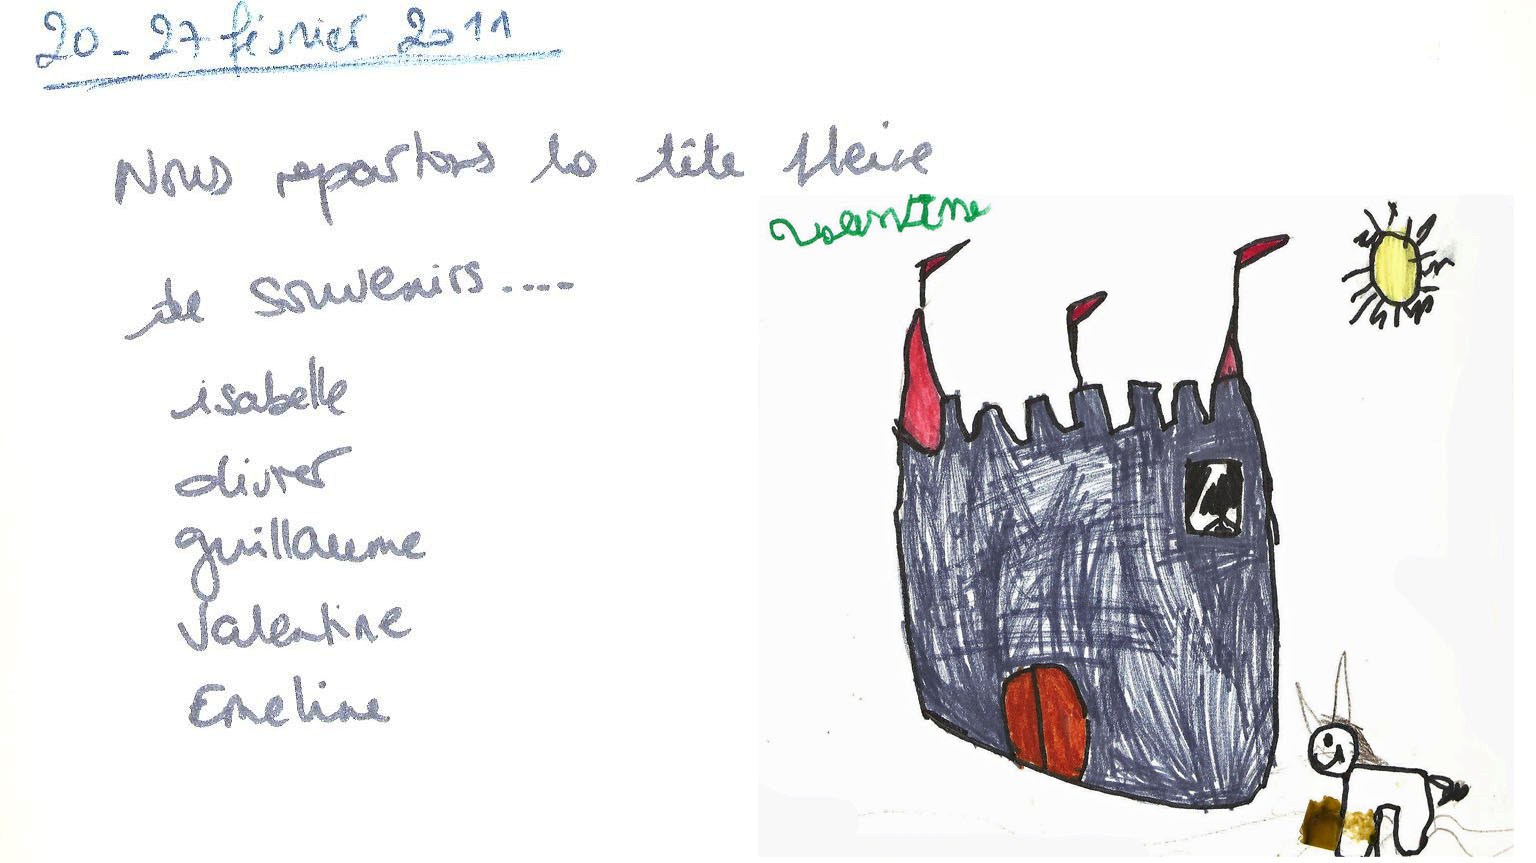 20-27 février 2011
Nous repartons la tête pleine
valentine
de souvenirs....
isabelle
olivier
guillaume
Valentine
Emeline